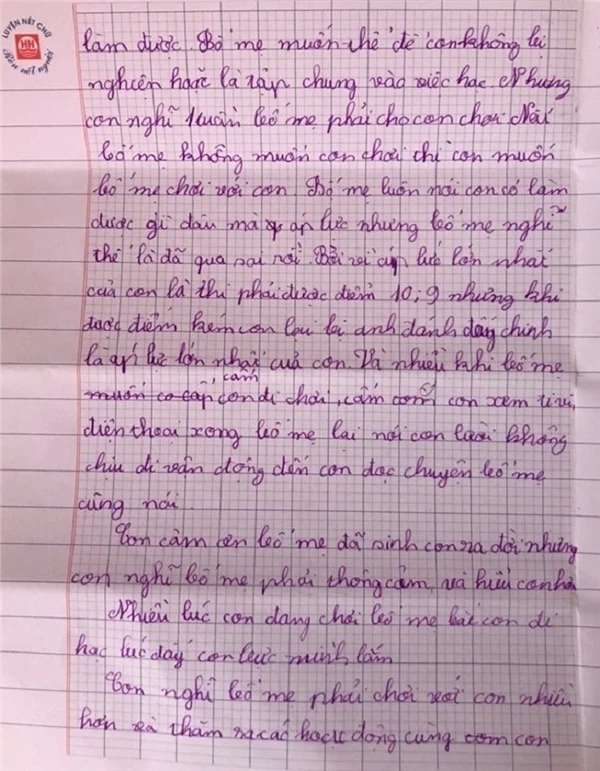 LUYỆN NÉT CHỮ
Rèn nết người
làm được. Bố mẹ muốn thế để con không bị
nghiện hoặc là tập chung vào việc học. Nhưng
con nghĩ tuần bố mẹ phải cho con chơi Nếu
bố mẹ không muốn con chơi thì con muốn
bố mẹ chơi với con. Bố mẹ luôn nói con có làm
được gì đâu mà áp lực nhưng bố mẹ nghĩ
thế là đã quá sai rồi. Bởi vì áp lực lớn nhất
của con là thi phải được điểm 10, 9 nhưng khi
được điểm kém con lại bị anh đánh đấy chính
là áp lực lớn nhất của con. Và nhiều khi bố mẹ
muốn co cấp, cấm con đi chơi, cấm com con xem ti vi,
điện thoại xong bố mẹ lại nói con lười không
chịu đi vận động đến con đọc chuyện bố mẹ
cũng nói.
Con cảm ơn bố mẹ đã sinh con ra đời nhưng
con nghĩ bố mẹ phải thông cảm và hiểu con hơn
Nhiều lúc con đang chơi bố mẹ bắt con đi
học lúc đấy con bực mình lắm
Con nghĩ bố mẹ phải chơi với con nhiều
hơn và thăm ra các hoạt động cùng com con